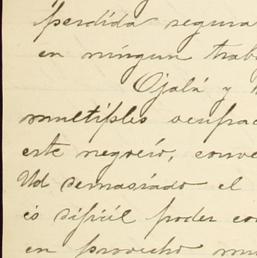 perdida segura
en ningun trab
Ojalá y
multiples ocupac
este negocio, conve
Ud demasiado el
és dificil poder con
en provecho mu